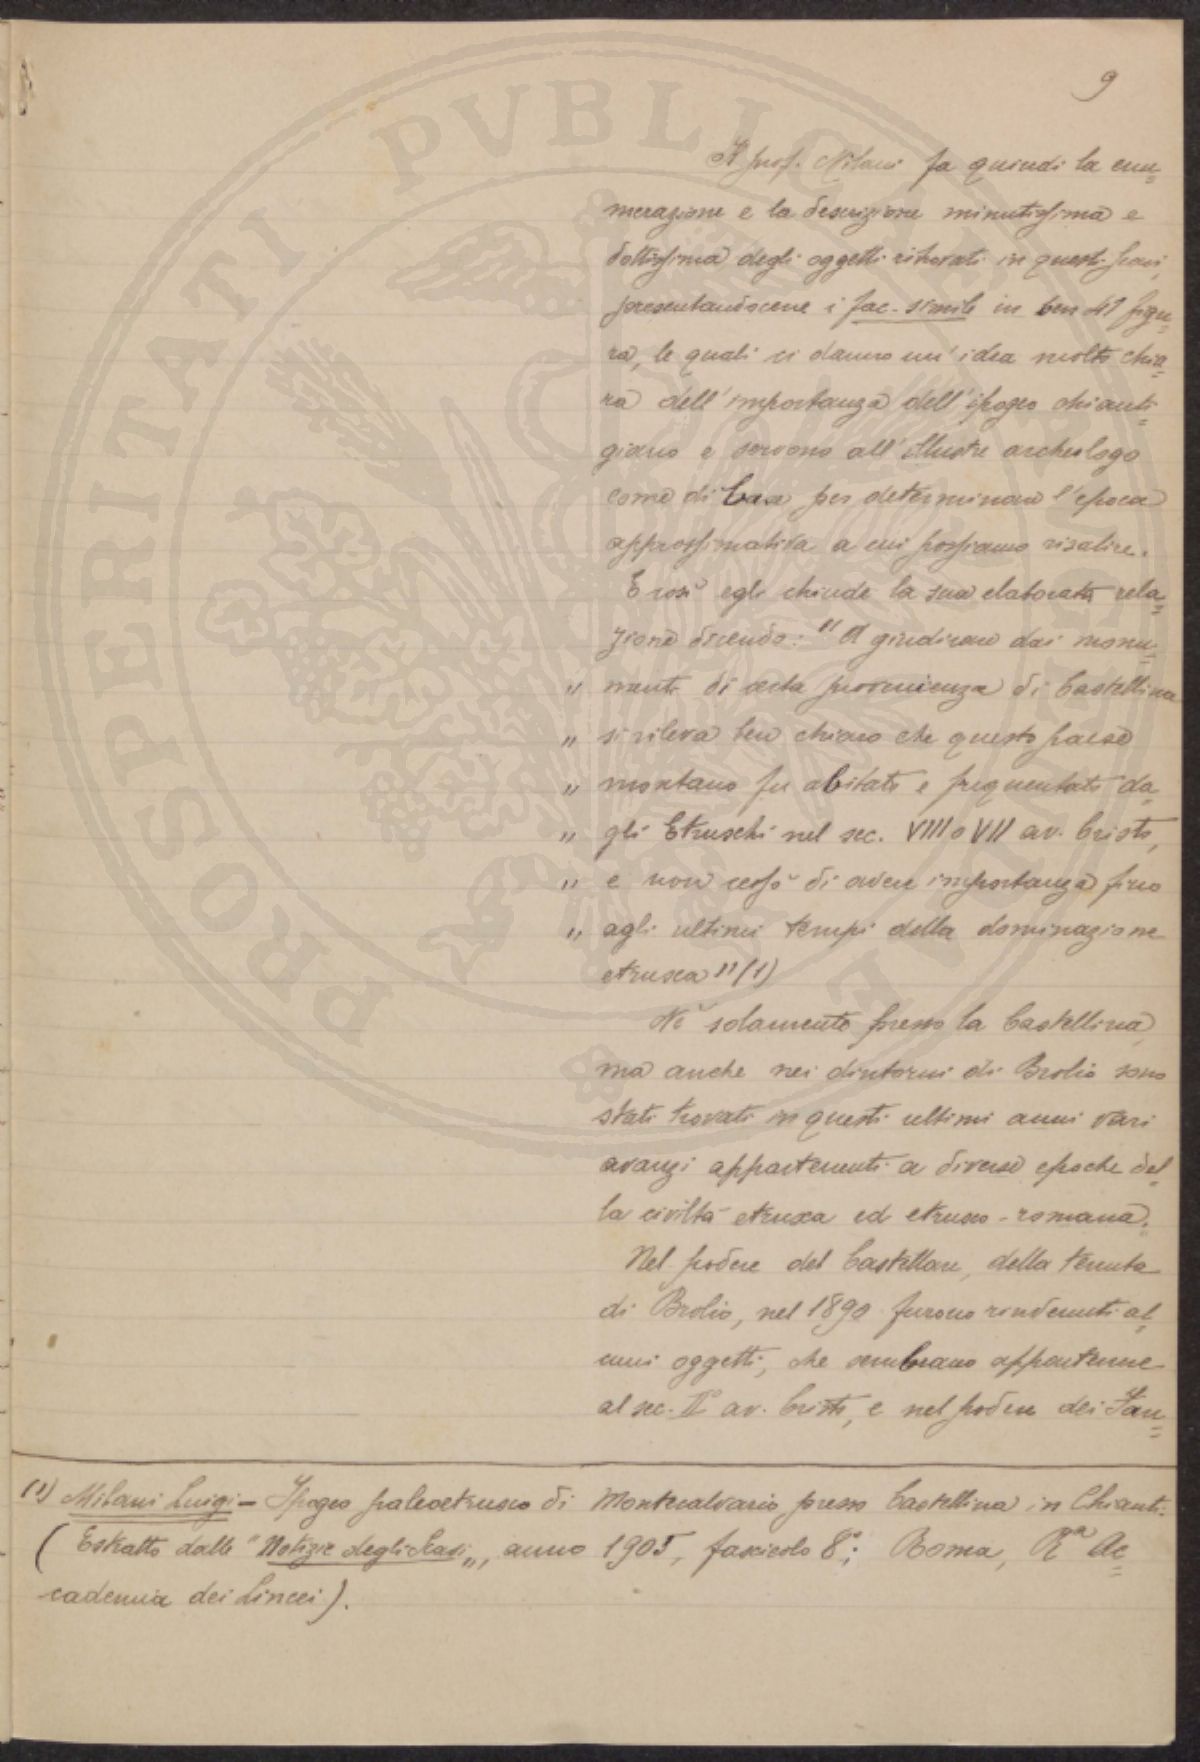 9
Il prof. Milani fa quindi la enu=
merazione e la descrizione minutissima e
dottissima degli oggetti ritrovati in questi scavi,
presentandocene i fac-simile in ben 41 figu=
ra, le quali ci danno un'idea molto chia=
ra dell'importanza dell'ipogeo chianti=
giano e servono all'illustre archeologo
come di base per determinare l'epoca
approssimativa a cui possiamo risalire.
E così egli chiude la sua elaborata rela=
zione dicendo: "A giudicare dai monu=
" menti di certa provenienza di Castellina
" si rileva ben chiaro che questo paese
" montano fu abitato e frequentato da=
" gli Etruschi nel sec. VIII o VII av. Cristo,
" e non cessò di avere importanza fino
" agli ultimi tempi della dominazione
etrusca" (1)
Nè solamente presso la Castellina,
ma anche nei dintorni di Brolio sono
stati trovati in questi ultimi anni vari
avanzi appartenenti a diverse epoche del=
la civiltà etrusca ed etrusco-romana.
Nel podere del Castellare, della tenuta
di Brolio, nel 1890 furono rinvenuti al=
cuni oggetti, che sembrano appartenere
al sec. II° av. Cristo, e nel podere dei Fan=
(1) Milani Luigi - Ipogeo paleoetrusco di Montecalvario presso Castellina in Chianti.
(Estratto dalle "Notizie degli Scavi", anno 1905, fascicolo 8°; Roma, R.a Ac=
cademia dei Lincei).
PROSPERITATI PVBLICAE